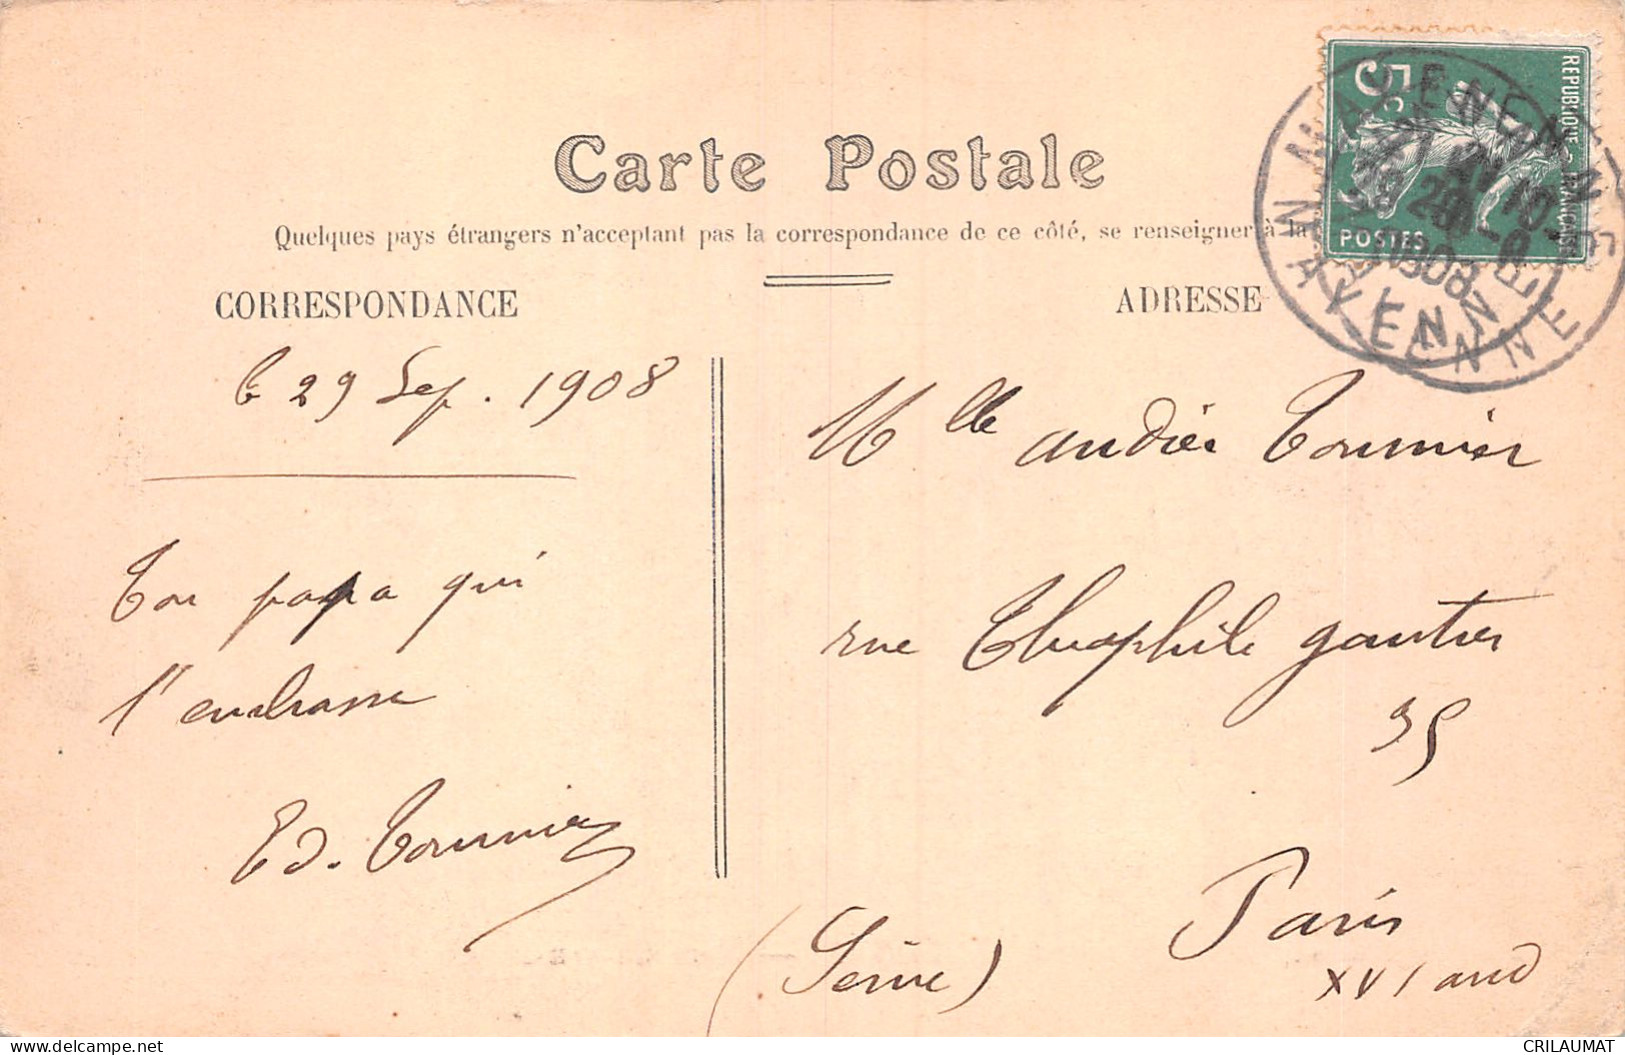 Carte Postale
Quelques pays étrangers n'acceptant pas la correspondance de ce côté, se renseigner à la
CORRESPONDANCE
ADRESSE
5c
REPUBLIQUE FRANÇAISE
POSTES
MAYENNE
MAYENNE
1908
le 29 Sep. 1908
Ton papa qui
t'embrasse
Ed. Tournier
Mlle Andrée Tournier
rue Théophile Gautier
35
Paris
XVI arrd
(Seine)
CRILAUMAT